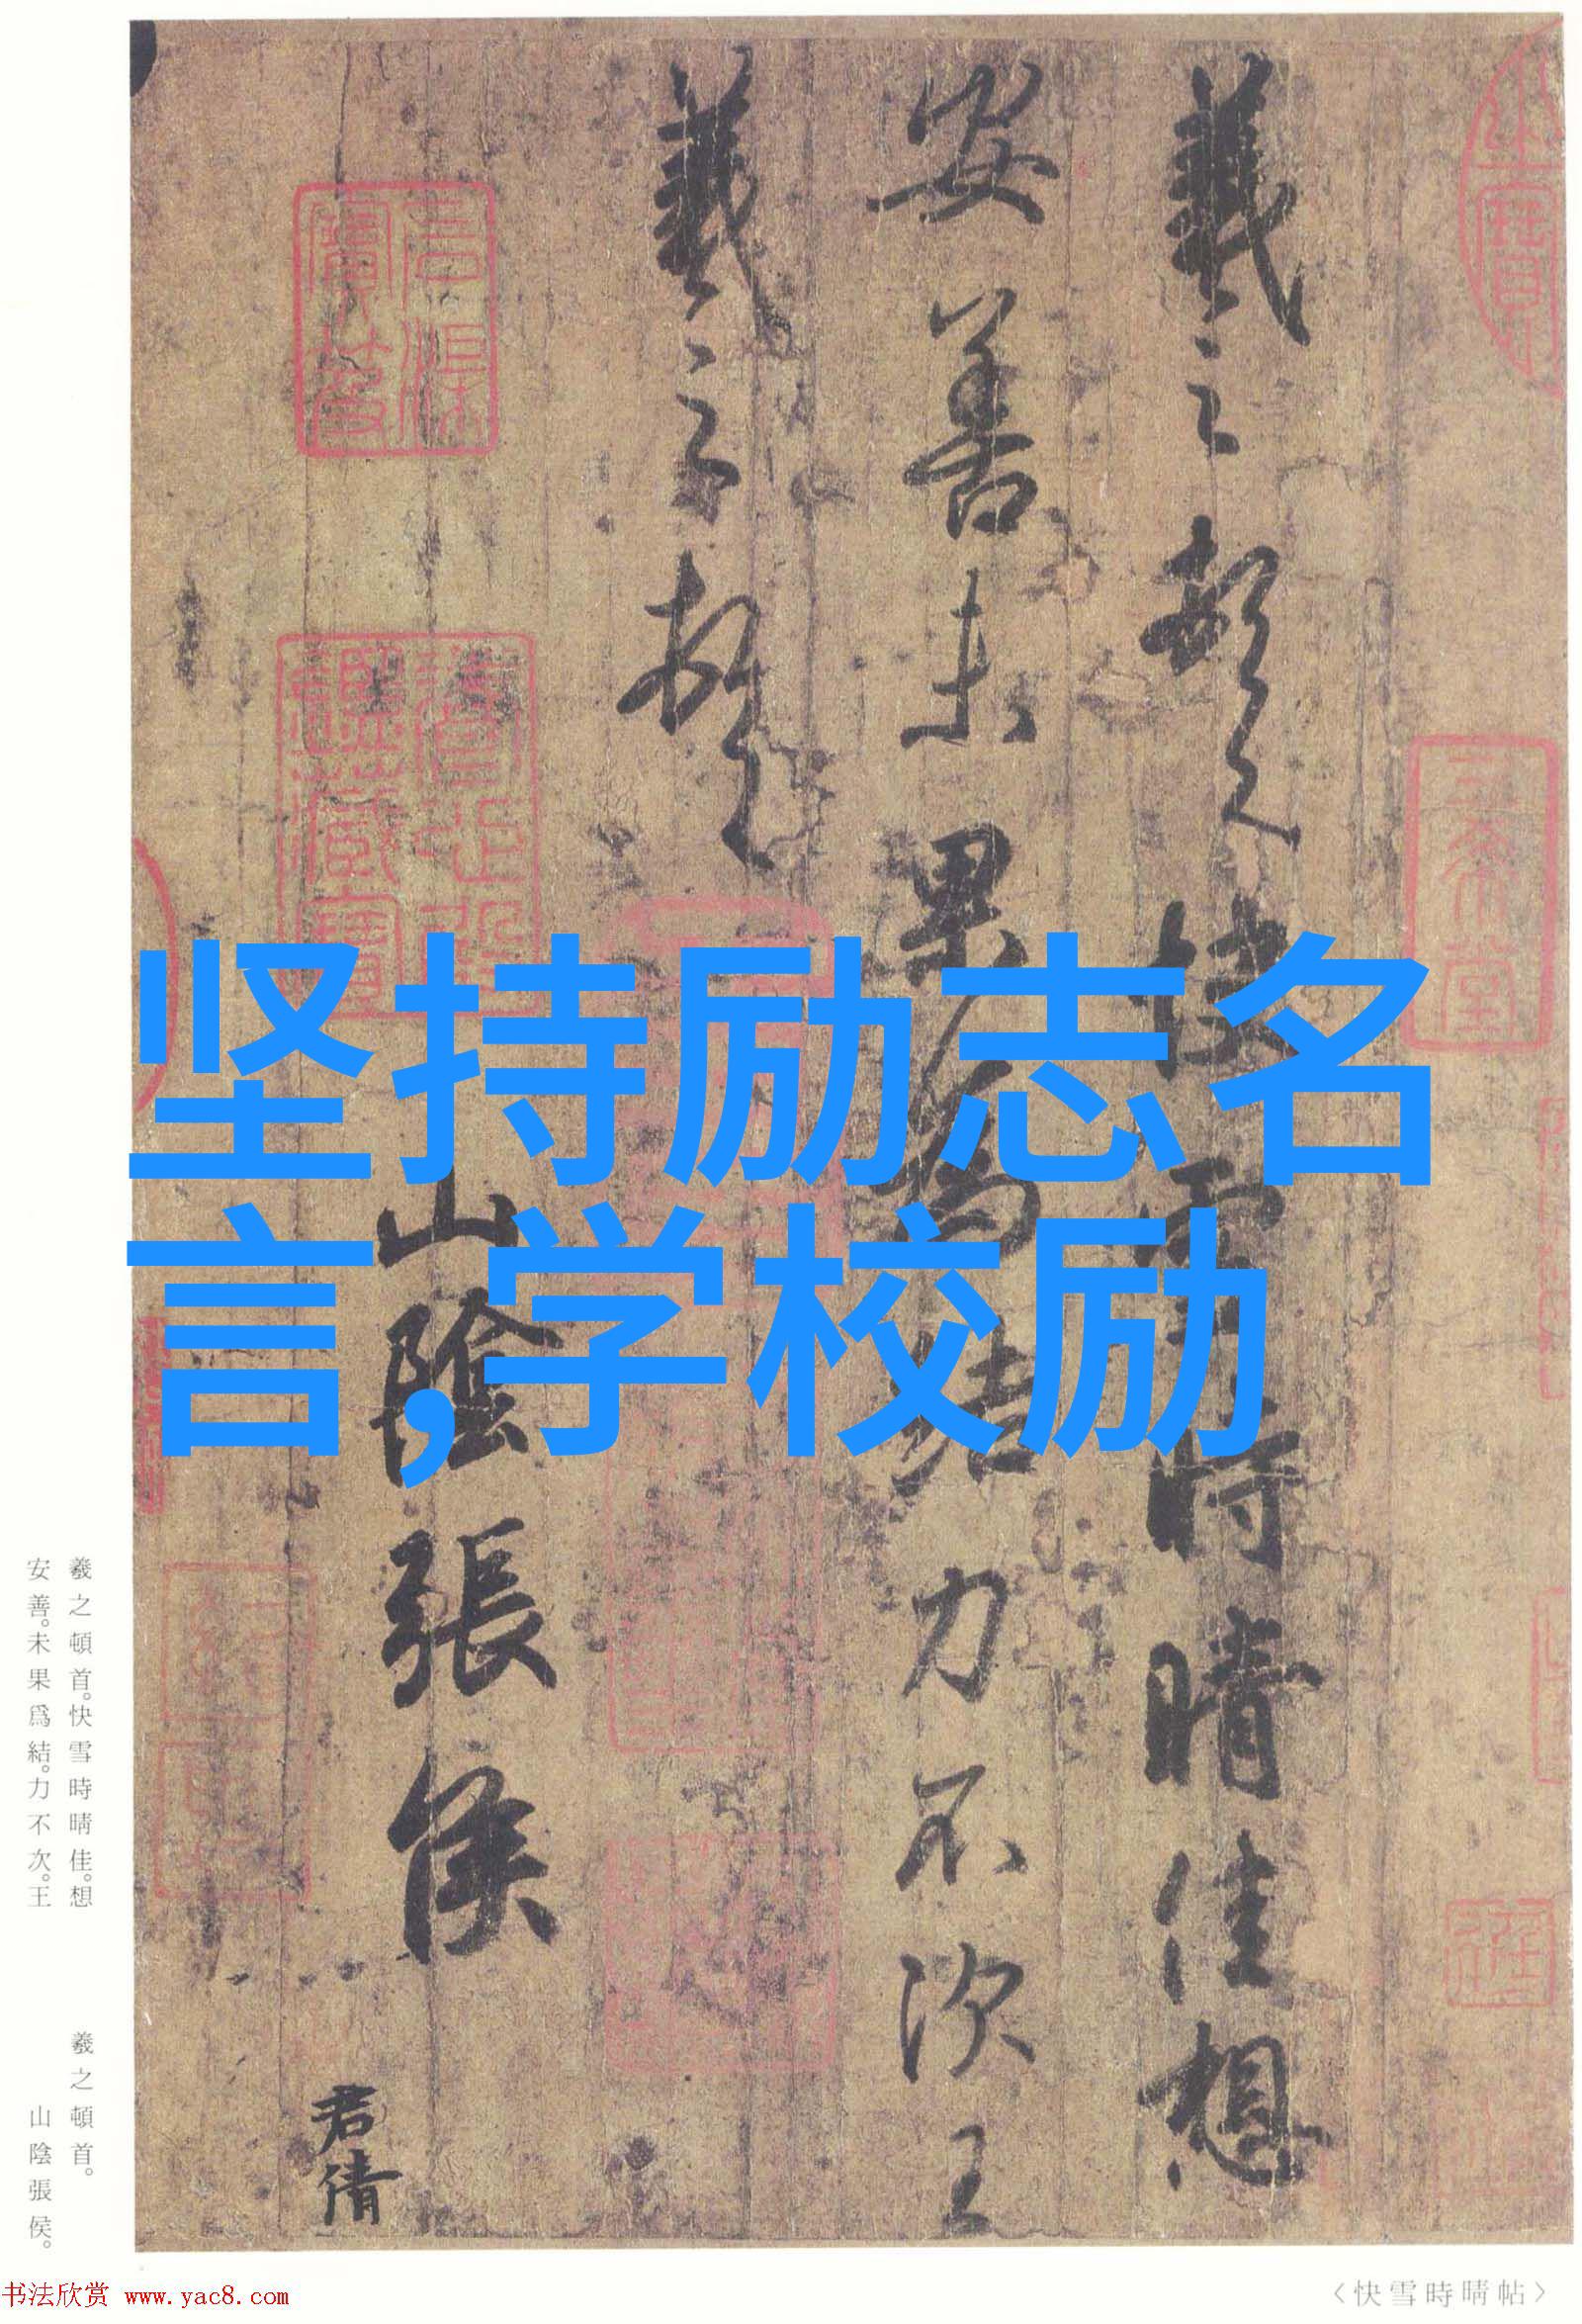 坚持励志名
言,学校励
羲之頓首快雪時晴佳想
安善未果為結力不次王
羲之頓首
山陰張侯
君倩
三希堂
羲之頓首。快雪時晴佳。想
安善。未果爲結。力不次。王
羲之頓首。
山陰張侯。
〈快雪時晴帖〉
书法欣赏 www.yac8.com